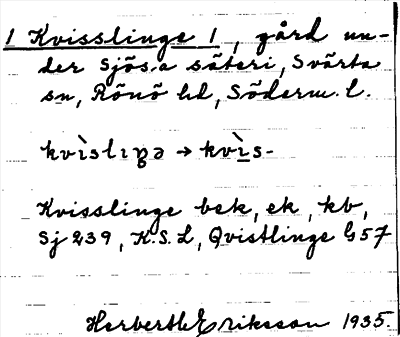 1 Kvisslinge 1, gård un-
der Sjösa säteri, Svärta
sn, Rönö hd, Söderm. l.
kvìslıŋə → kvìs-
Kvisslinge bek, ek, kb,
Sj 239, K.S.L, Qvistlinge G 57
Herbert Eriksson 1935.